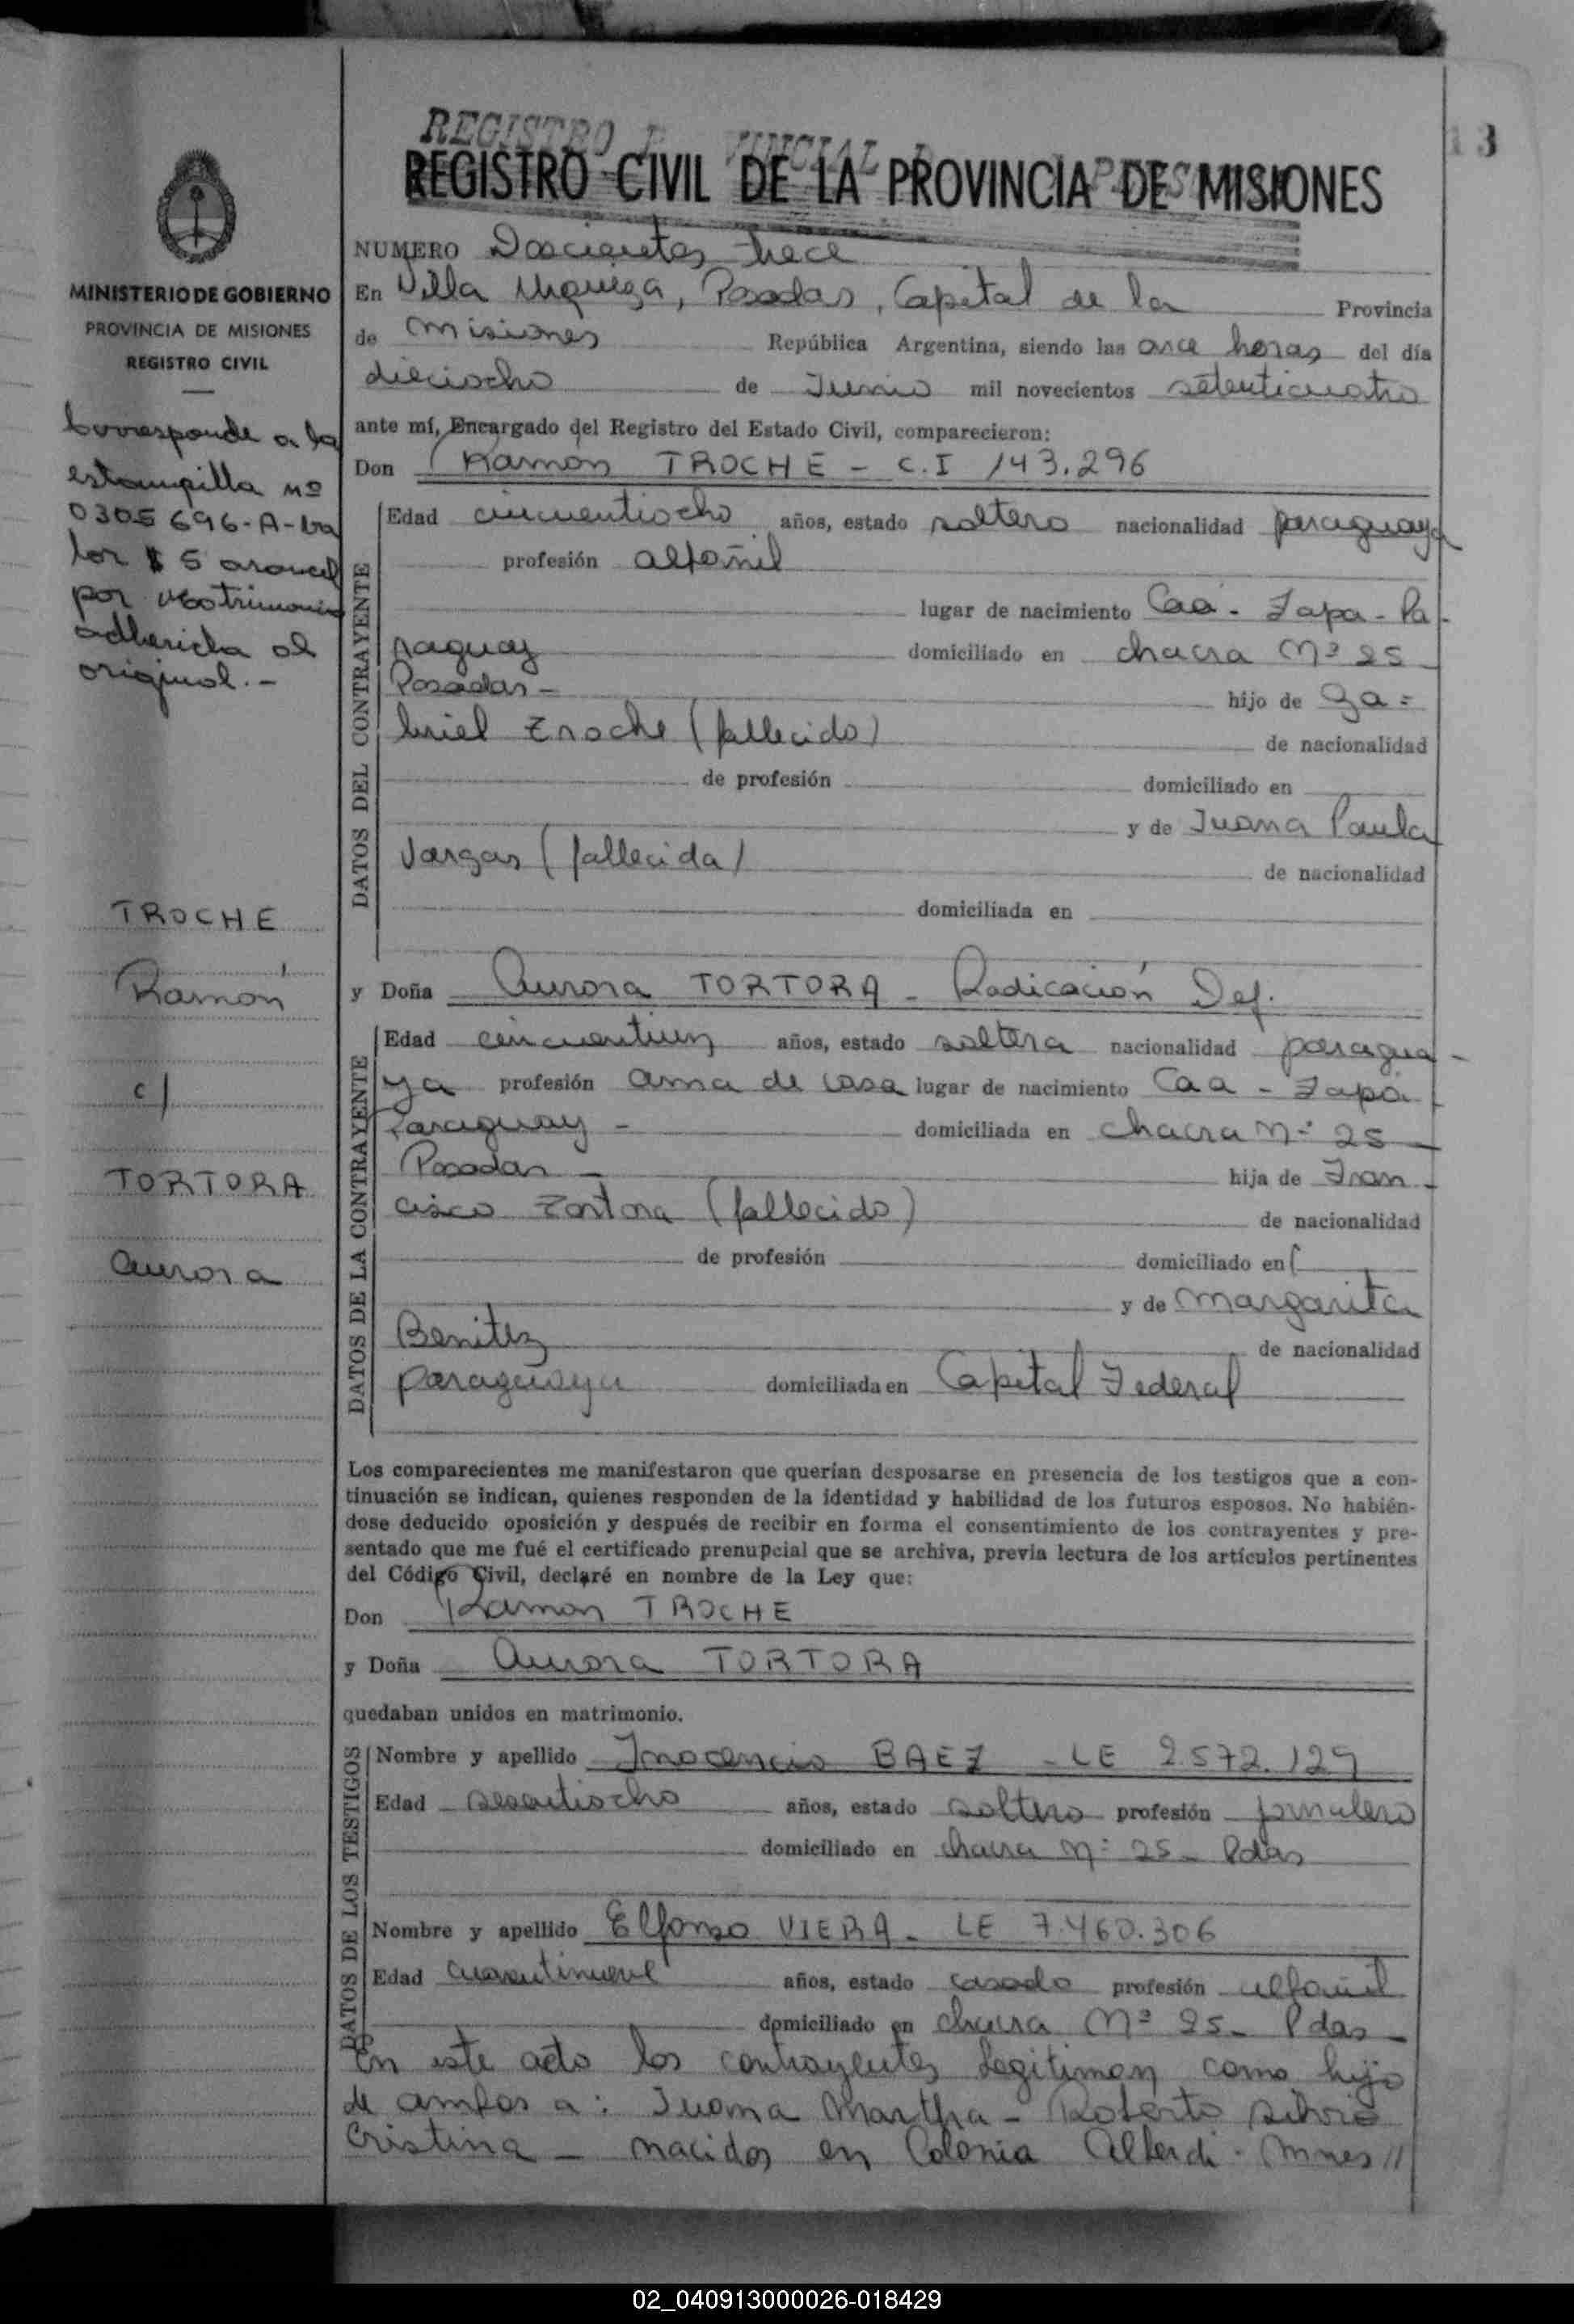 13
REGISTRO CIVIL DE LA PROVINCIA DE MISIONES
NUMERO Doscientos trece
MINISTERIO DE GOBIERNO
PROVINCIA DE MISIONES
REGISTRO CIVIL
Corresponde a la
estampilla Nº
0305696-A-Va
lor $ 5 arancel
por Matrimonio
adherida al
original.-
TROCHE
Ramón
c/
TORTORA
Aurora
En Villa Urquiza, Posadas, Capital de la Provincia
de Misiones República Argentina, siendo las once horas del día
dieciocho de Junio mil novecientos setenticuatro
ante mí, Encargado del Registro del Estado Civil, comparecieron:
Don Ramón TROCHE - C.I 143.296
DATOS DEL CONTRAYENTE
Edad cincuentiocho años, estado soltero nacionalidad paraguaya
profesión albañil
lugar de nacimiento Caá-Zapa-Pa-
raguay domiciliado en chacra Nº 25
Posadas- hijo de Ga=
briel Troche (fallecido) de nacionalidad
de profesión domiciliado en
y de Juana Paula
Vargas (fallecida) de nacionalidad
domiciliada en
y Doña Aurora TORTORA - Radicación Def.
DATOS DE LA CONTRAYENTE
Edad cincuentiun años, estado soltera nacionalidad paragua-
ya profesión ama de casa lugar de nacimiento Caa-Zapá
Paraguay - domiciliada en chacra Nº 25
Posadas - hija de Fran-
cisco Tortora (fallecido) de nacionalidad
de profesión domiciliado en
y de Margarita
Benitez de nacionalidad
paraguaya domiciliada en Capital Federal
Los comparecientes me manifestaron que querían desposarse en presencia de los testigos que a con-
tinuación se indican, quienes responden de la identidad y habilidad de los futuros esposos. No habién-
dose deducido oposición y después de recibir en forma el consentimiento de los contrayentes y pre-
sentado que me fué el certificado prenupcial que se archiva, previa lectura de los artículos pertinentes
del Código Civil, declaré en nombre de la Ley que:
Don Ramon TROCHE
y Doña Aurora TORTORA
quedaban unidos en matrimonio.
DATOS DE LOS TESTIGOS
Nombre y apellido Inocencio BAEZ - LE 2.572.129
Edad sesentiocho años, estado soltero profesión jornalero
domiciliado en chacra Nº 25- Pdas
Nombre y apellido Elfonso VIERA - LE 7.460.306
Edad cuarentinueve años, estado casado profesión albañil
domiciliado en chacra Nº 25- Pdas-
En este acto los contrayentes legitiman como hijo
de ambos a: Juana Martha - Roberto Silvio
Cristina - nacidos en Colonia Alberdi - Mnes //
02_040913000026-018429